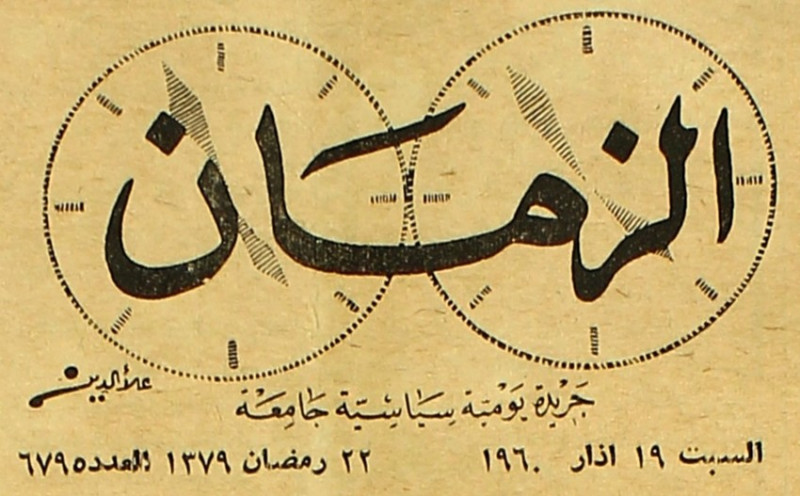 الزمان
علاء الدين
جريدة يومية سياسية جامعة
السبت ١٩ اذار ١٩٦٠ ٢٢ رمضان ١٣٧٩ العدد ٦٧٩٥